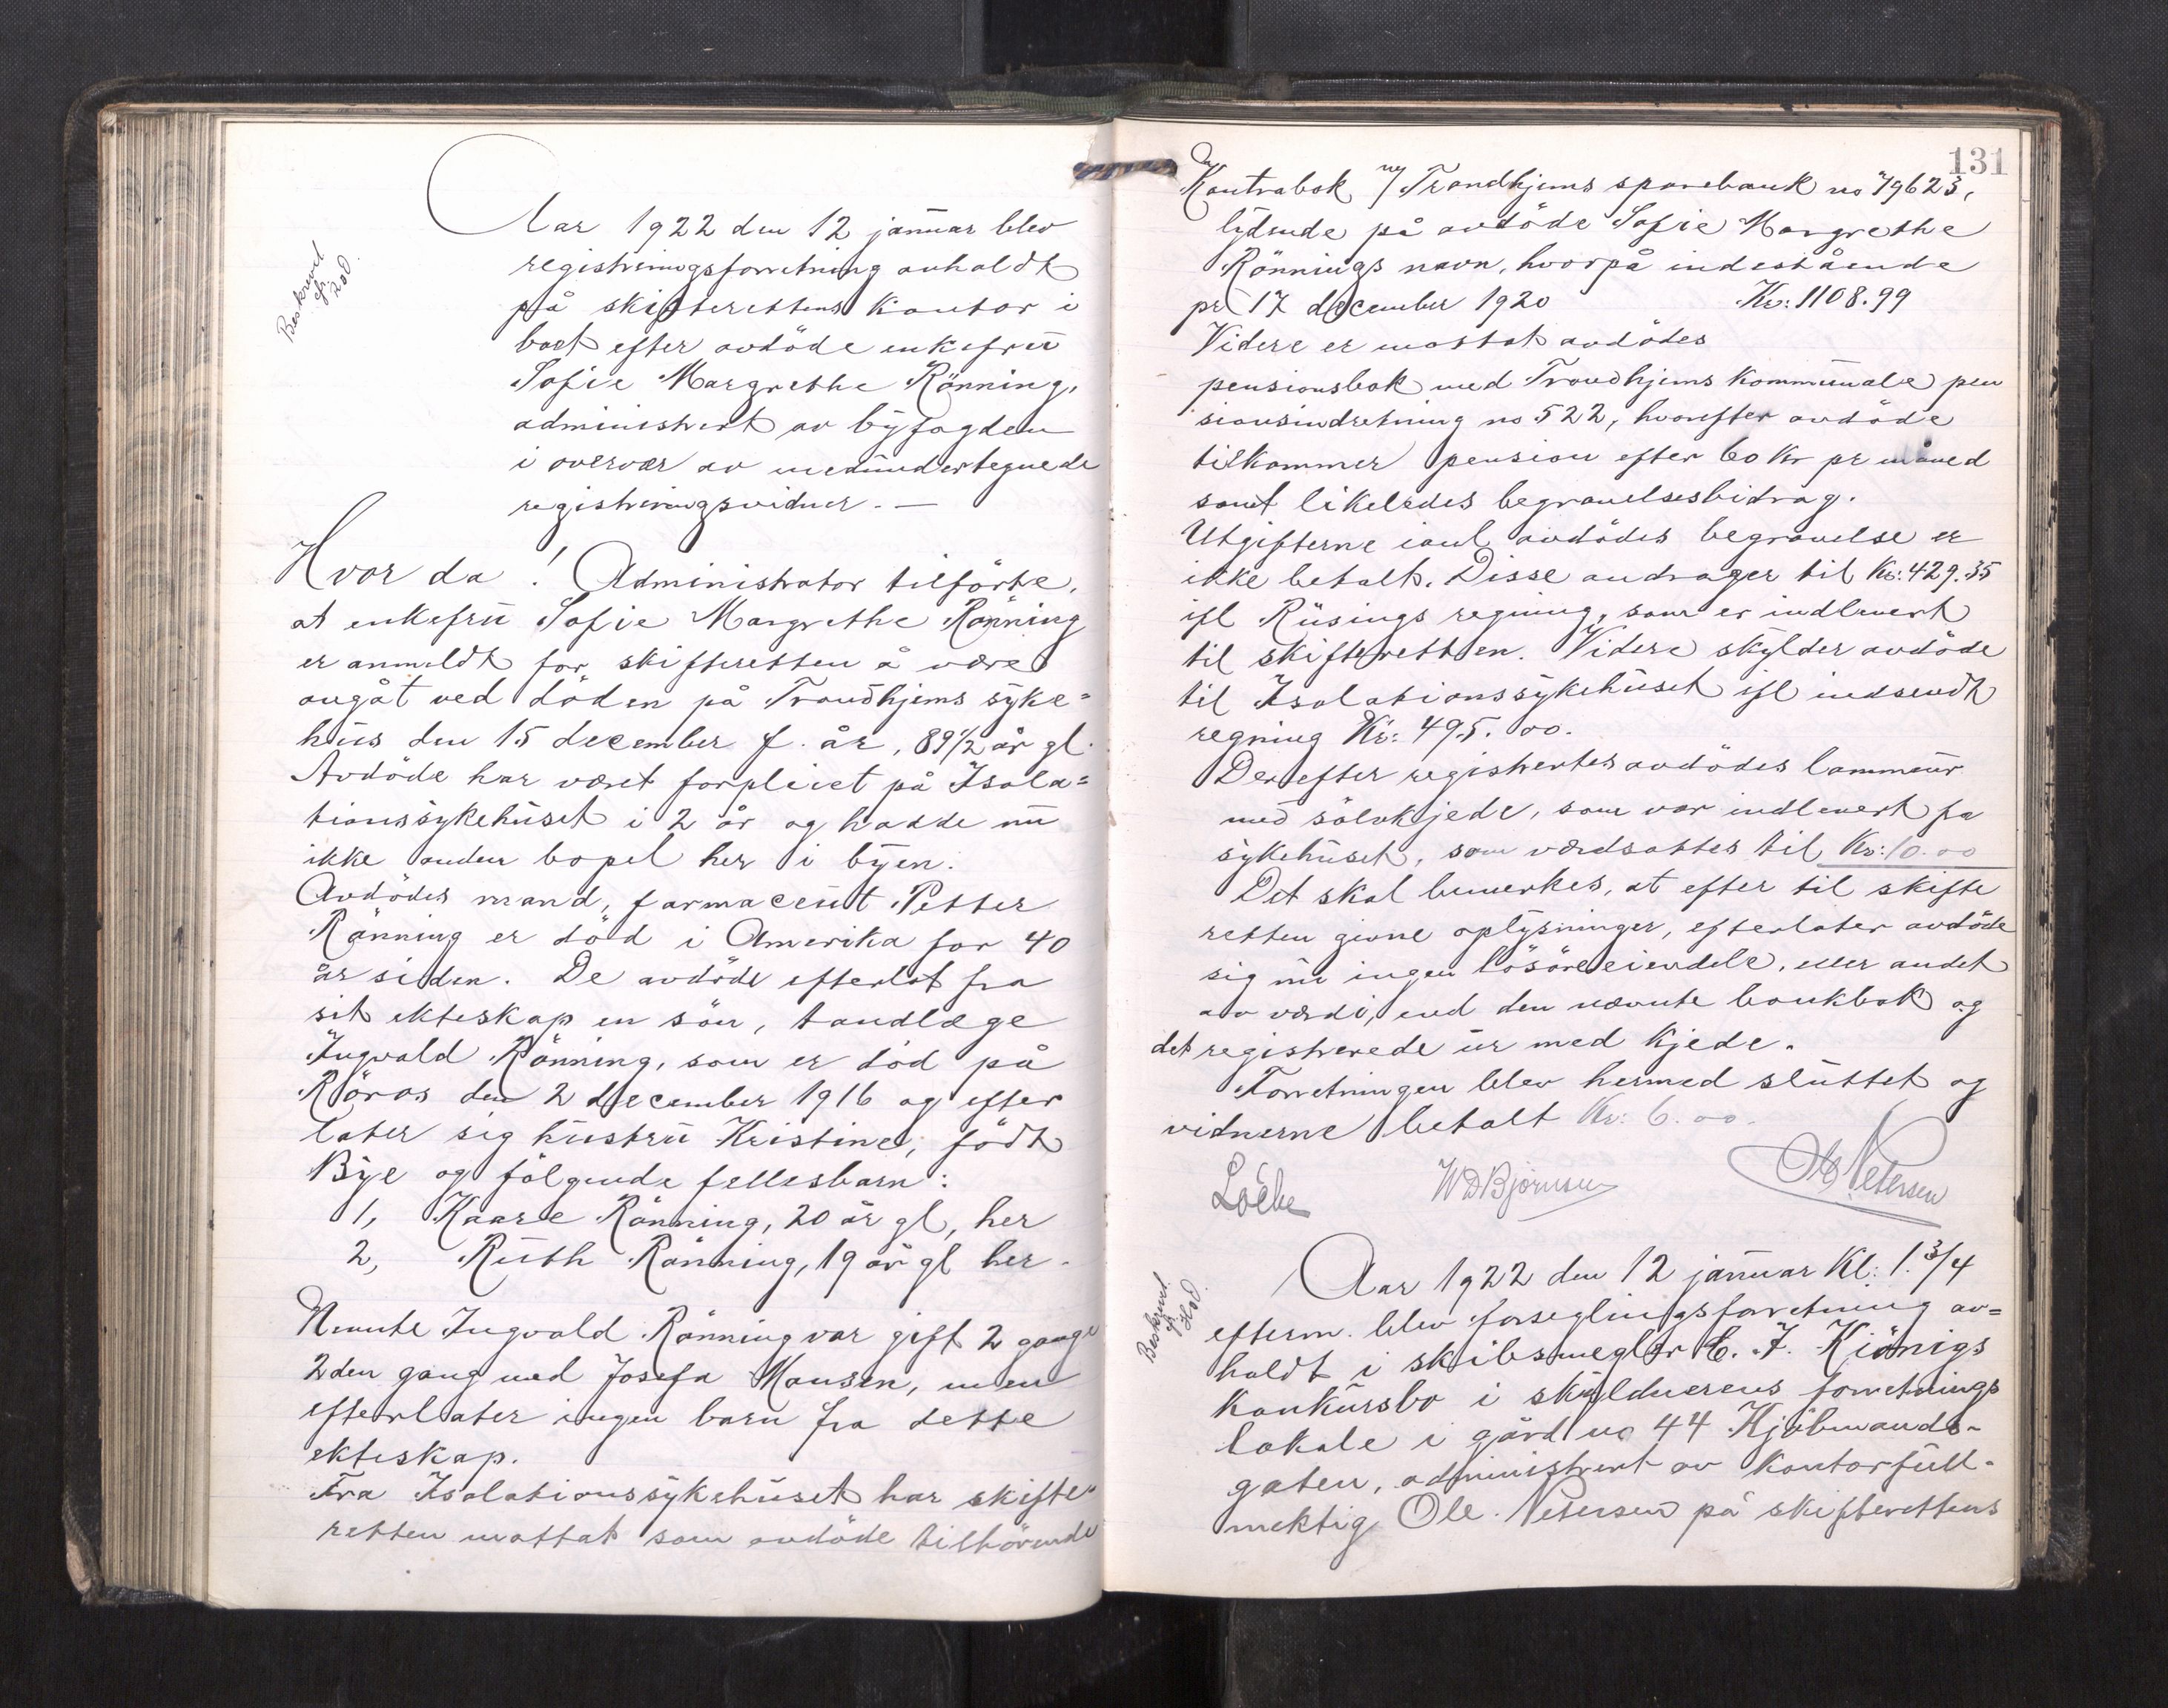 Beskrevet
200.
Aar 1922 den 12 januar blev
registreringsforretning avholdt
på skifterettens kontor i
boet efter avdöde enkefru
Sofie Margrethe Rönning,
administrert av byfogden
i overvær av medundertegnede
registreringsvidner. —
Hvor da! Administrator tilförte,
at enkefru Sofie Margrethe Rönning
er anmeldt for skifteretten å være
avgåt ved döden på Trondhjems syke=
hus den 15 december f. år, 89 1/2 år gl.
Avdöde har været forpleiet på Isola=
tionssykehuset i 2 år og hadde nu
ikke anden bopel her i byen.
Avdödes mand, farmaceut Petter
Rönning er död i Amerika for 40
år siden. De avdöde efterlot fra
sit ekteskap en sön, tandlæge
Ingvald Rönning, som er död på
Röros den 2 december 1916 og efter
later sig hustru Kristine, födt
Bye og fölgende fellesbarn:
1, Kaare Rönning, 20 år gl, her
2, Ruth Rönning, 19 år gl her.
Nevnte Ingvald Rönning var gift 2 gange
2den gang med Josefa Hansen, men
efterlater ingen barn fra dette
ekteskap.
Fra Isolationssykehuset har skifte
retten mottat som avdöde tilhörende
131
Kontrabok m/ Trondhjems sparebank no 79623,
lydende på avdöde Sofie Margrethe
Rönnings navn, hvorpå indestående
pr 17 december 1920 Kr: 1108.99
Videre er mottat avdödes
pensionsbok med Trondhjems kommunale pen
sionsindretning no 522, hvorefter avdöde
tilkommer pension efter 60 kr pr måned
samt likeledes begravelsesbidrag.
Utgifterne i anl avdödes begravelse er
ikke betalt. Disse andrager til Kr: 429.35
ifl Rüsings regning, som er indlevert
til skifteretten. Videre skylder avdöde
til Isolationssykehuset ifl indsendt
regning Kr: 495.00.
Derefter registrertes avdödes lommeur
med sölvkjede, som var indlevert fra
sykehuset, som værdsattes til Kr: 10.00
Det skal bemerkes, at efter til skifte
retten givne oplysninger, efterlater avdöde
sig nu ingen lösöreeiendele, eller andet
av værdi, end den nævnte bankbok og
det registrerede ur med kjede.
Forretningen blev hermed sluttet og
vidnerne betalt Kr: 6.00.
Loebe W D Björnsen Ole Petersen
Beskrevet
Aar 1922 den 12 januar Kl: 1. 3/4
efterm. blev forseglingsforretning av=
holdt i skibsmegler C. F. Kiönigs
konkursbo i skyldnerens forretnings
lokale i gård no 44 Kjöbmands-
gaten, administrert av kontorfull-
mektig Ole Petersen på skifterettens